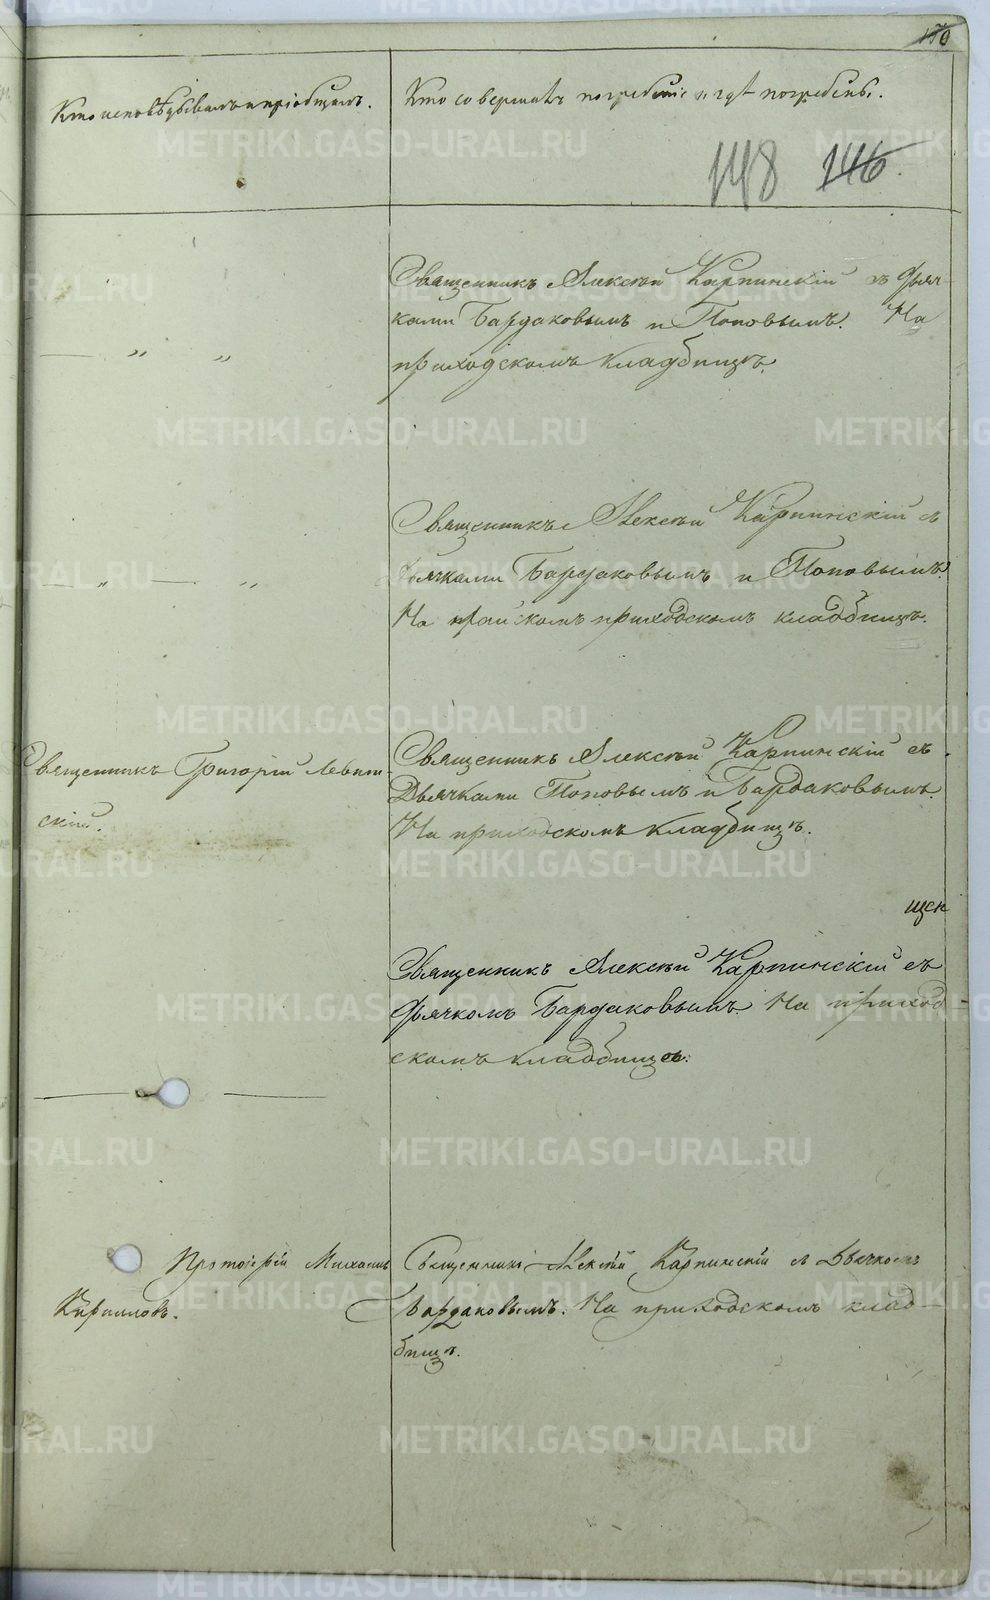 170
Кто исповѣдывалъ и пріобщалъ.
Кто совершалъ погребеніе и гдѣ погребены.
148 146.
Священникъ Алексѣй Карпинскій съ Дьяч-
ками Бардаковымъ и Поповымъ. На
приходскомъ кладбищѣ.
— „ „
Священникъ Алексѣй Карпинскій съ
Дьячками Бардаковымъ и Поповымъ.
На приходскомъ кладбищѣ.
— „ — „
Священникъ Григорій Левит-
скій.
Священникъ Алексѣй Карпинскій съ
Дьячками Поповымъ и Бардаковымъ.
На приходскомъ кладбищѣ.
Священникъ Алексѣй Карпинскій съ
Дьячкомъ Бардаковымъ. На приход-
скомъ кладбищѣ.
Протоіерей Михаилъ
Кириловъ.
Священникъ Алексѣй Карпинскій съ Дьячкомъ
Бардаковымъ. На приходскомъ клад-
бищѣ.
METRIKI.GASO-URAL.RU